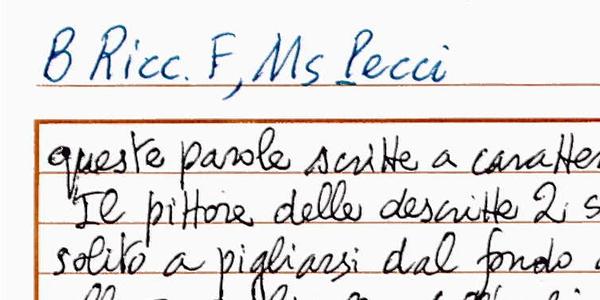 B Ricc. F, Ms Pecci
queste parole scritte a caratter
Il pittore delle descritte 2 s
solito a pigliarsi dal fondo